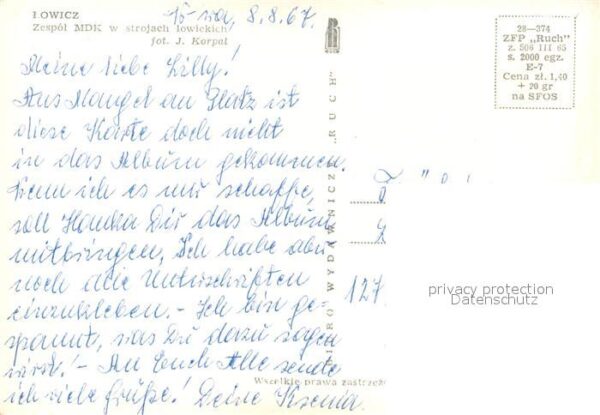 ŁOWICZ
Zespół MDK w strojach łowickich
fot. J. Korpal
8.8.67.
Meine liebe Lilly!
Aus Mangel an Platz ist
diese Karte doch nicht
in das Album gekommen.
Wenn ich es nur schaffe,
soll Hanka Dir das Album
mitbringen, Ich habe aber
noch alle Unterschriften
einzukleben. - Ich bin ge-
spannt, was Du dazu sagen
wirst! - An Euch Alle sende
ich viele Grüße! Deine Ksenia.
BIURO WYDAWNICZE „RUCH"
28—374
ZFP „Ruch"
z. 506 III 65
s. 2000 egz.
E-7
Cena zł. 1,40
+ 20 gr
na SFOS
127
privacy protection
Datenschutz
Wszelkie prawa zastrzeż